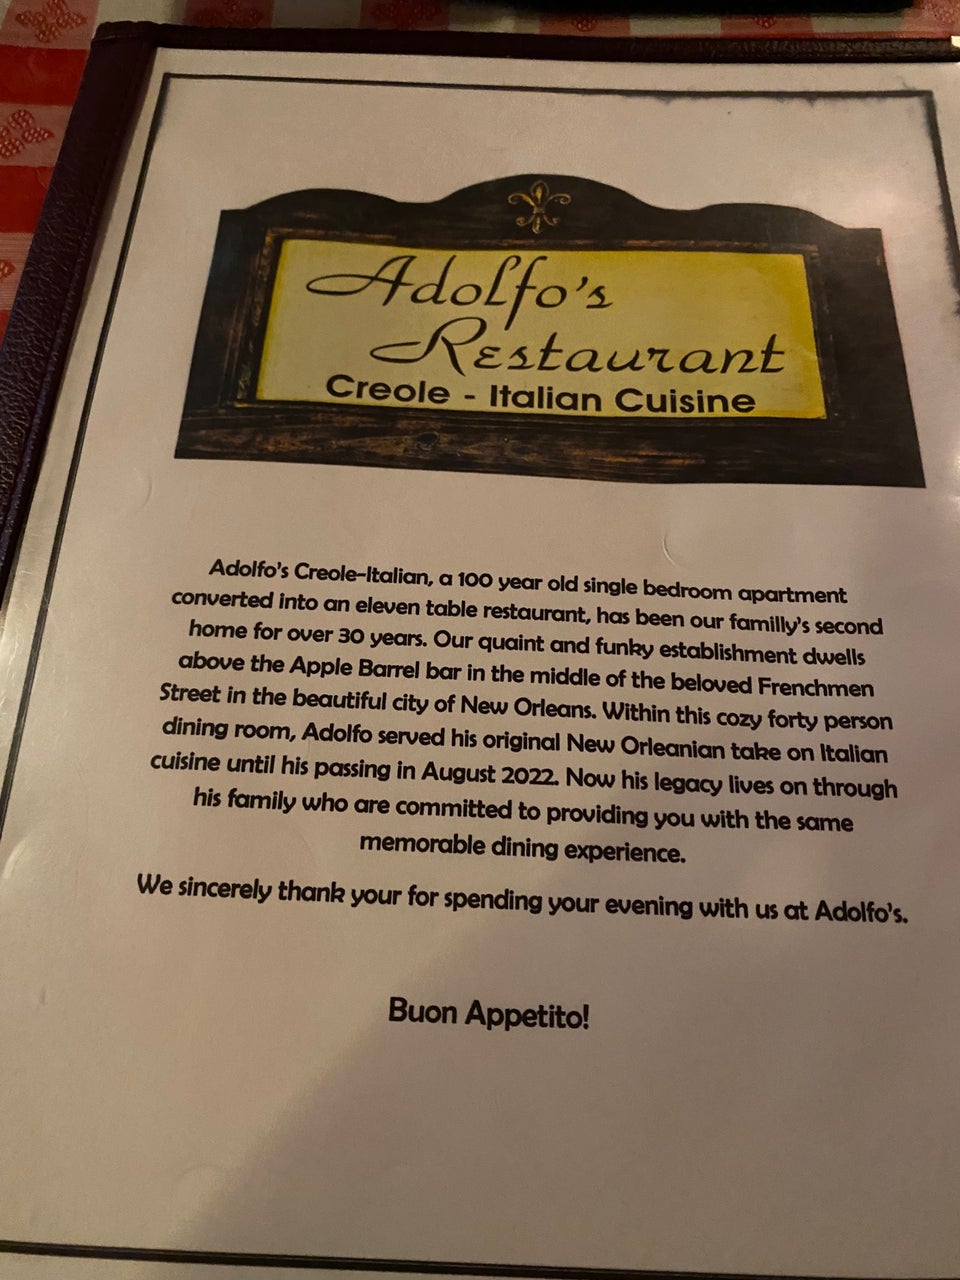 Adolfo's
Restaurant
Creole - Italian Cuisine
Adolfo's Creole-Italian, a 100 year old single bedroom apartment
converted into an eleven table restaurant, has been our familly's second
home for over 30 years. Our quaint and funky establishment dwells
above the Apple Barrel bar in the middle of the beloved Frenchmen
Street in the beautiful city of New Orleans. Within this cozy forty person
dining room, Adolfo served his original New Orleanian take on Italian
cuisine until his passing in August 2022. Now his legacy lives on through
his family who are committed to providing you with the same
memorable dining experience.
We sincerely thank your for spending your evening with us at Adolfo's.
Buon Appetito!